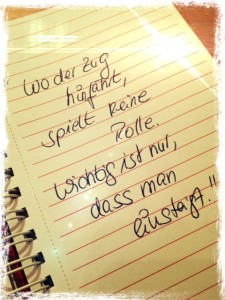 Wo der Zug
hinfährt,
spielt keine
Rolle.
Wichtig ist nur,
dass man
einsteigt!!